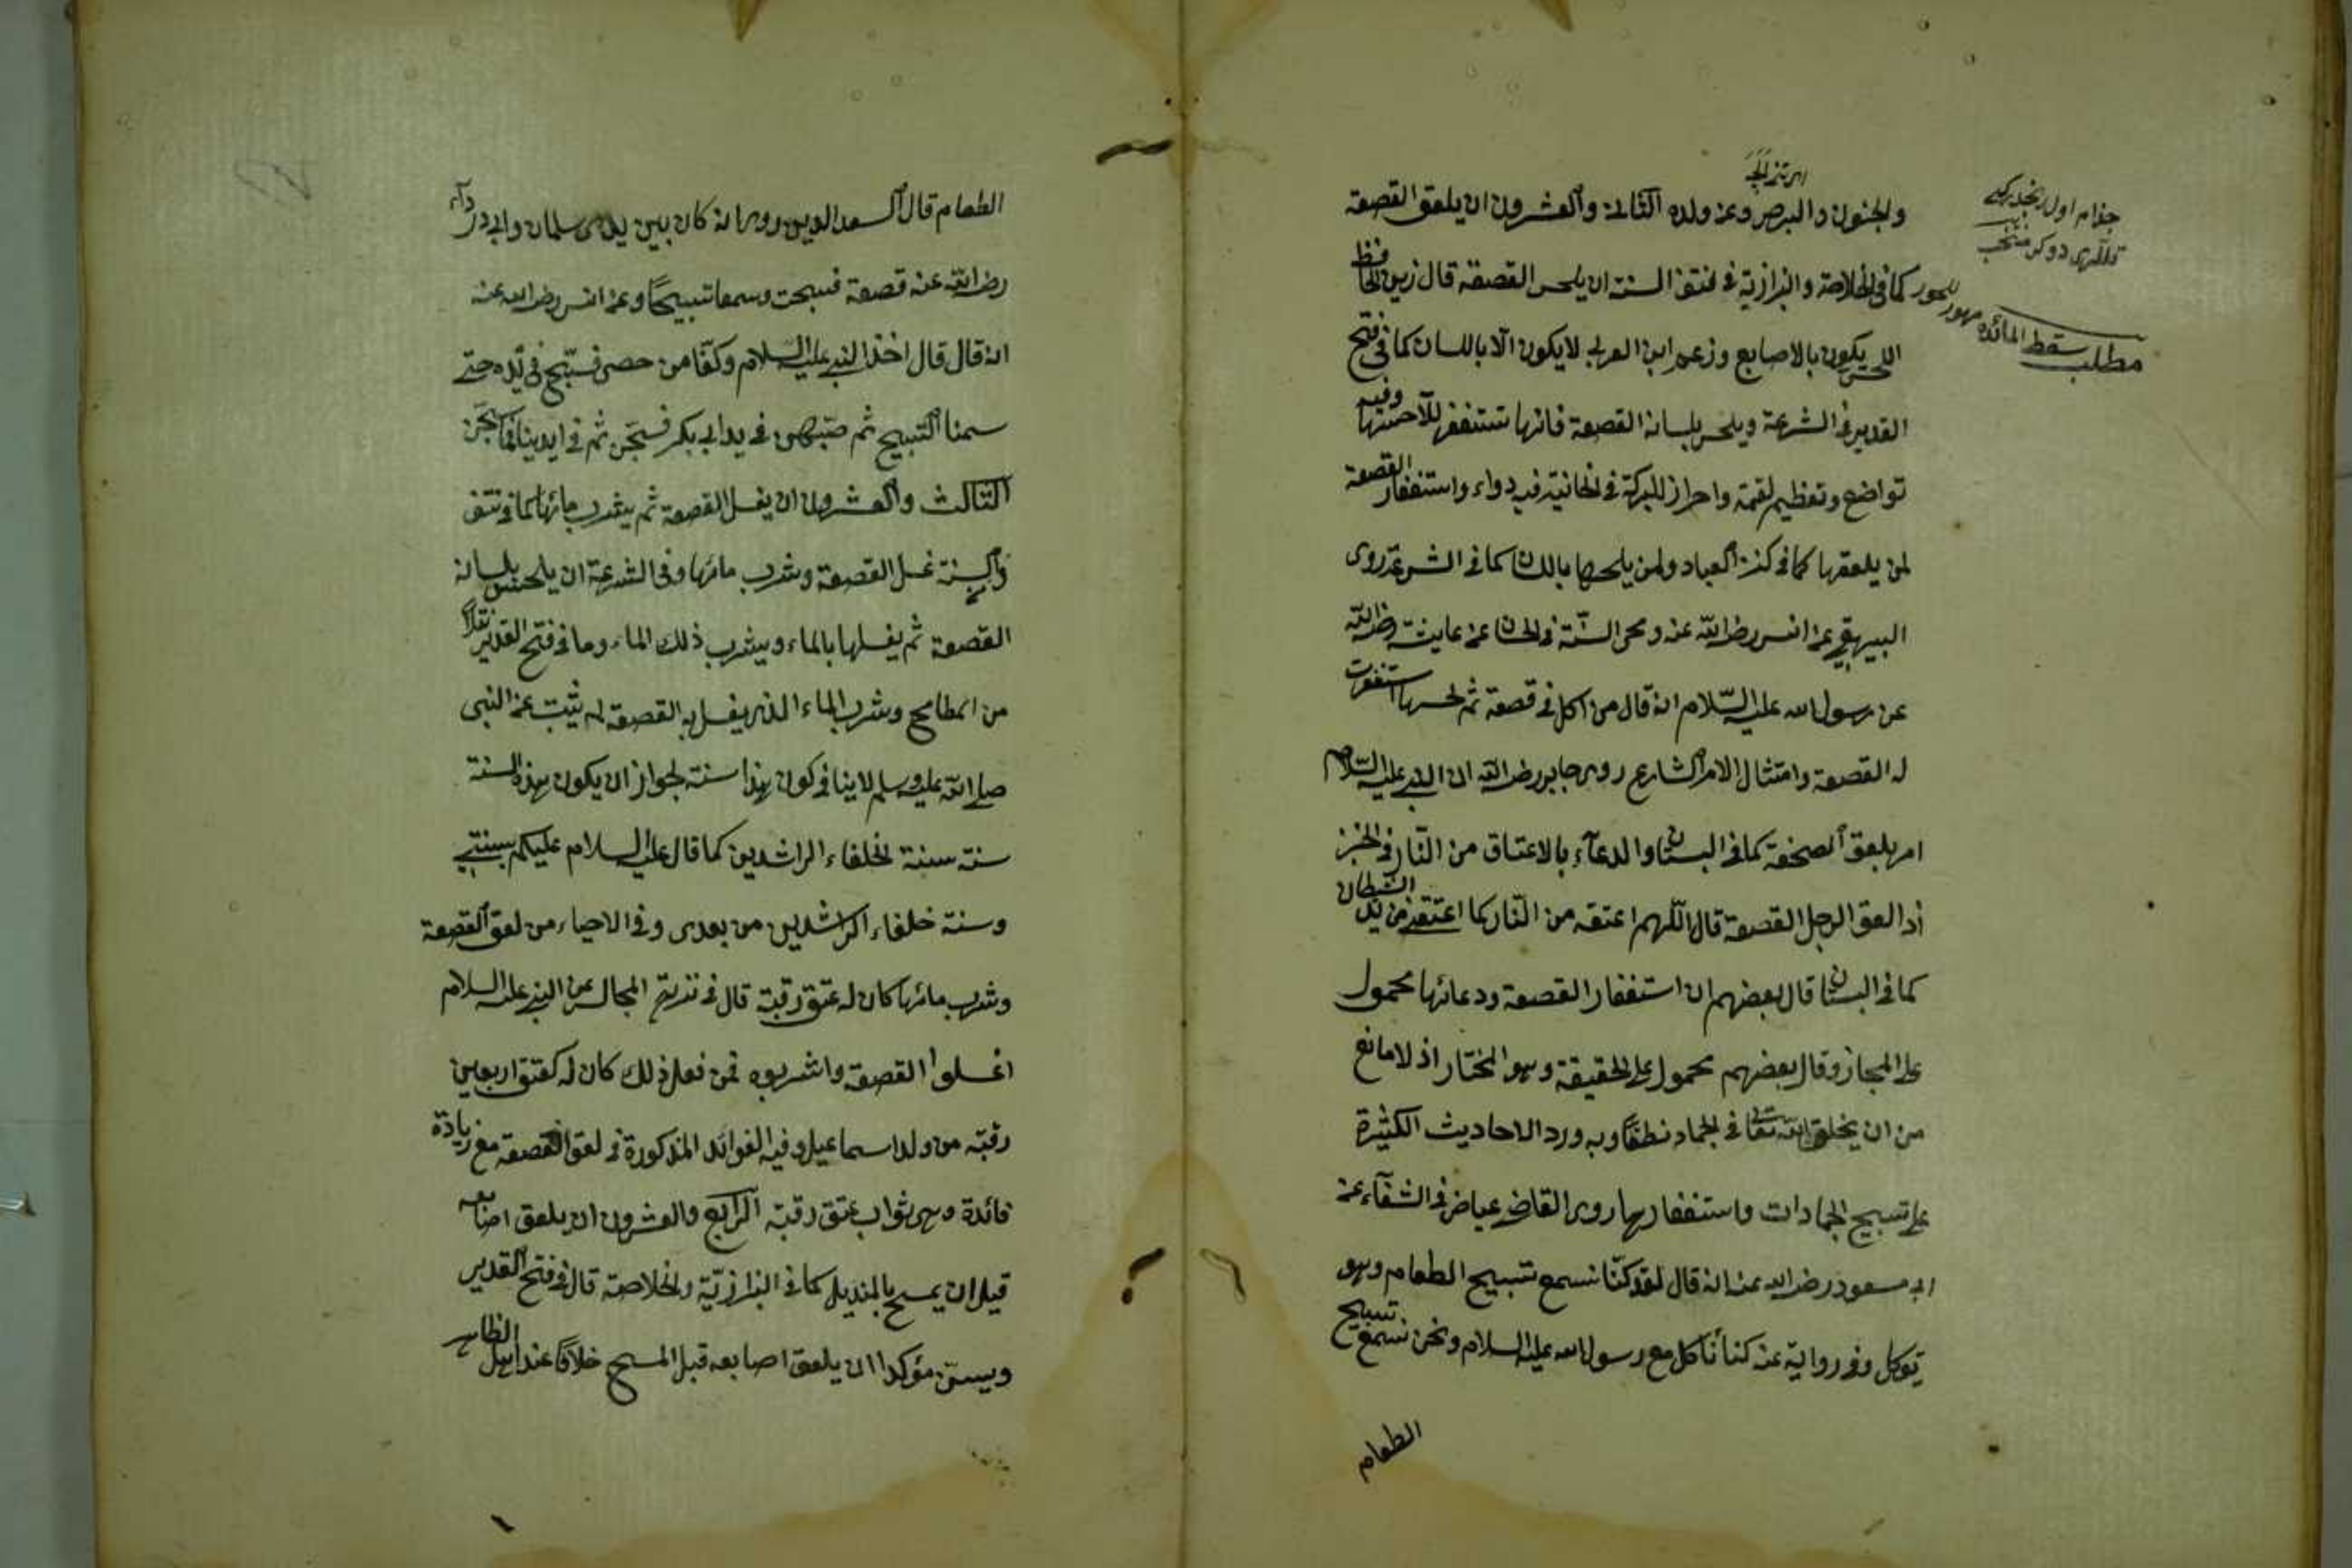 والجنون والبرص وعن ولده الثانى والعشرون ان يلعق القصعة
كما فى الخلاصة والبزازية فى السنة ان يلحس القصعة قال زين الحافظ
اللحس يكون بالاصابع وزعم ابن العربى لا يكون الا باللسان كما فى فتح
القدير فى الشرعة ويلحس بلسانه القصعة فانها تستغفر للاحسها وفيه
تواضع وتعظيم لقمة واحراز للبركة فى الخانية فيه دواء واستغفار القصعة
لمن يلعقها كما فى كنز العباد ولمن يلحسها باللسان كما فى الشرعة روى
البيهقى عن انس رضى الله عنه ومحى السنة عن عايشة رضى الله
عن رسول الله عليه السّلام انه قال من اكل فى قصعة ثم لحسها استغفرت
له القصعة وامتثال الامر الشارع روى جابر رضى الله ان النبى عليه السّلام
امر بلعق الصحفة كما فى البستان والدعآء بالاعتاق من النّار فى الخبر
اذا لعق الرجل القصعة قال اللّهم اعتقه من النّار كما اعتقنى من يد الشيطان
كما فى البستان قال بعضهم ان استغفار القصعة ودعائها محمول
على المجاز وقال بعضهم محمول على الحقيقة وهو المختار اذ لا مانع
من ان يخلق الله تعالى فى الجماد نطقًا وبه ورد الاحاديث الكثيرة
على تسبيح الجمادات واستغفارها روى القاضى عياض فى الشفآء عن
ابى مسعود رضى الله عنه انه قال لقد كنّا نسمع تسبيح الطعام وهو
يؤكل وفى رواية عنه كنا نأكل مع رسول الله عليه السلام ونحن نسمع تسبيح
الطعام
جذام اول
مطلب سقط المائده مهور للحور
الطعام قال السعد الدين روى انه كان بين يدى سلمان وابى درداء
رضى الله عنه قصعة فسبحت وسمعا تسبيحًا وعن انس رضى الله عنه
انه قال قال اخذ النبى عليه السلام وكفّا من حصى فسبّح فى يده حتى
سمعنا التسبيح ثم صبّهن فى يد ابى بكر فسبّحن ثم فى ايدينا فما سبّحن
الثالث والعشرون ان يغسل القصعة ثم يشرب مائها كما فى نتف
والسنة غسل القصعة وشرب مائها وفى الشرعة ان يلحس بلسانه
القصعة ثم يغسلها بالماء ويشرب ذلك الماء وما فى فتح القدير نقلاً
من المطامح وشرب الماء الذى يغسل به القصعة لم يثبت عن النبى
صلى الله عليه وسلم لا ينافى كون هذا سنة لجواز ان يكون هذه السنة
سنة سنة الخلفاء الراشدين كما قال عليه السلام عليكم بسنتى
وسنة خلفاء الراشدين من بعدى وفى الاحياء من لعق القصعة
وشرب مائها كان له عتق رقبة قال فى المجالس عن النبى عليه السلام
اغسلوا القصعة واشربوه فمن فعل ذلك كان له كعتق اربعين
رقبة من ولد اسماعيل وفيه الفوائد المذكورة فى لعق القصعة مع زيادة
فائدة وهى ثواب عتق رقبة الرابع والعشرون ان يلعق اصابعه
قبل ان يمسح بالمنديل كما فى البزازيّة والخلاصة قال فى فتح القدير
ويسنّ مؤكدا ان يلعق اصابعه قبل المسح خلافًا عند اهل الظاهر